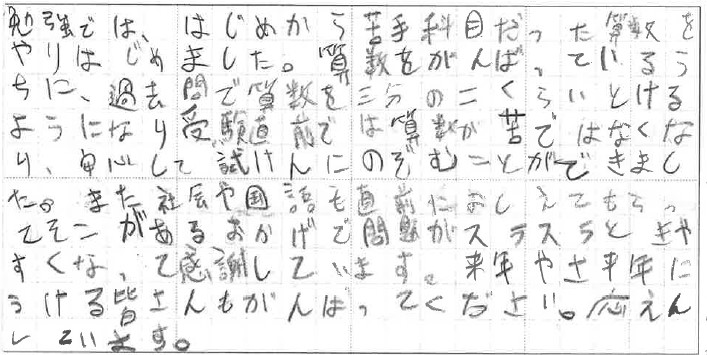 勉強では、はじめから苦手科目だった算数を
やりはじめました。算数をがんばっているう
ちに、過去問で算数を三分の二くらいとける
ようになり受験直前では算数が苦ではなくな
り、安心して試けんにのぞむことができまし
た。また社会や国語も直前におしえてもらっ
てそこがあるおかげで問題がスラスラときや
すくなって感謝しています。来年やさ来年に
うける皆さんもがんばってください。応えん
しています。